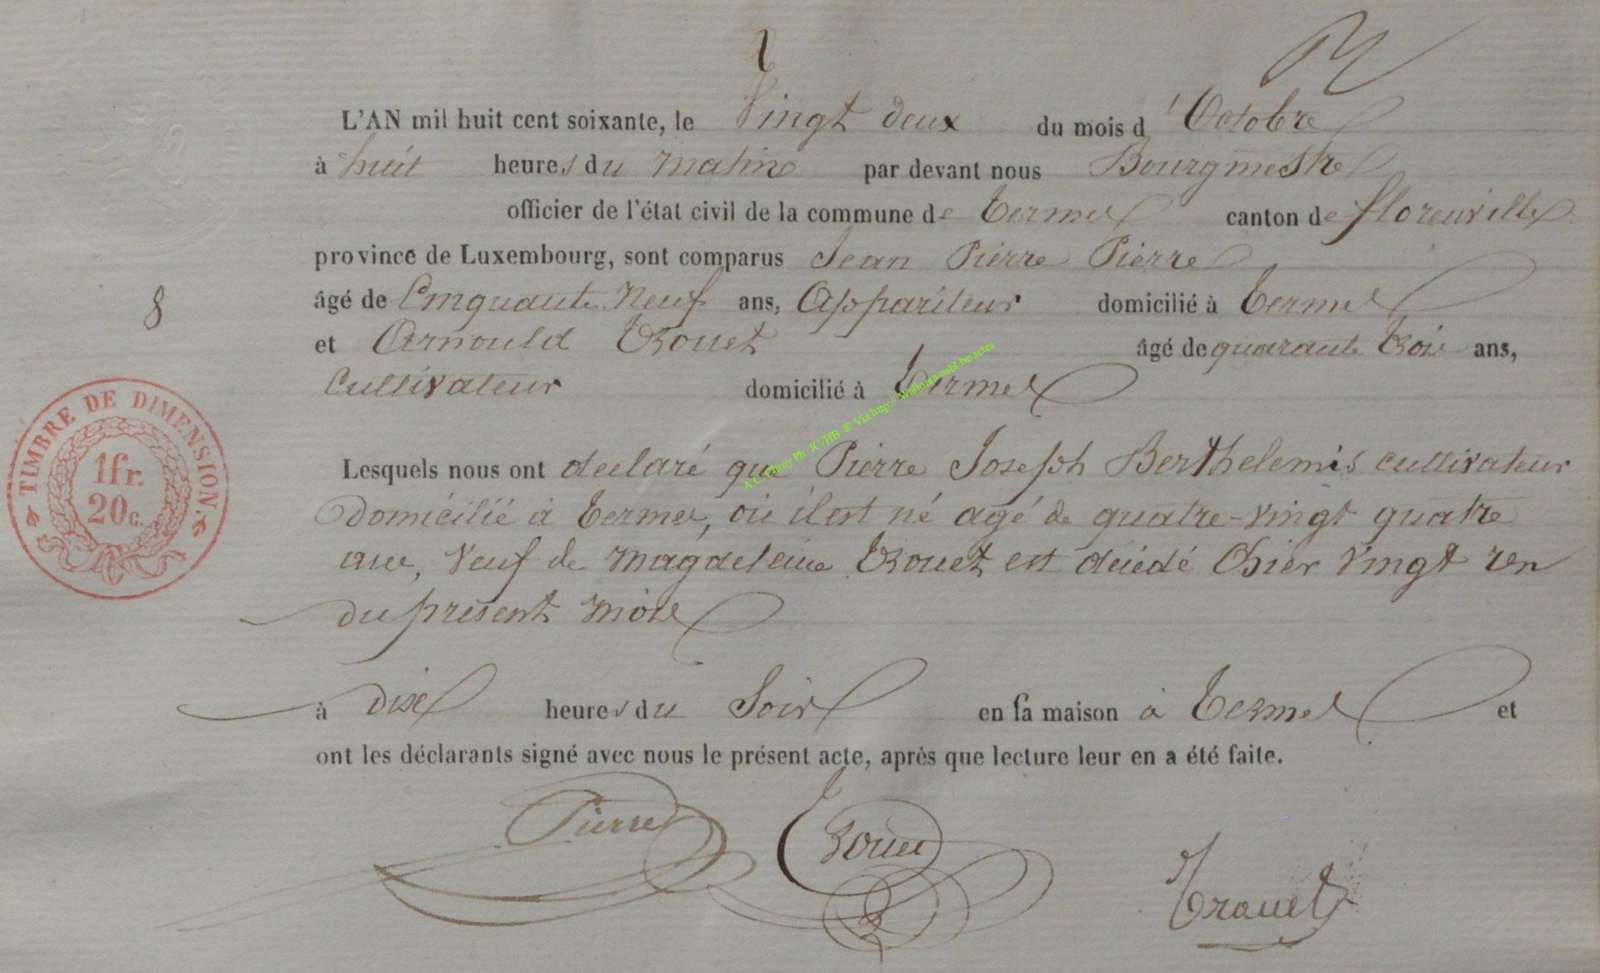 L'AN mil huit cent soixante, le Vingt deux du mois d'Octobre
à huit heures du matin par devant nous Bourgmestre
officier de l'état civil de la commune de Termes canton de florenville
province de Luxembourg, sont comparus Jean Pierre Pierre
âgé de Cinquante Neuf ans, Appariteur domicilié à Termes
8
et Arnould Trouet âgé de quarante Trois ans,
Cultivateur domicilié à Termes
TIMBRE DE DIMENSION.
1fr.
20c.
Lesquels nous ont déclaré que Pierre Joseph Berthelemis cultivateur
Domicilié à Termes, où il est né agé de quatre-vingt quatre
ans, Veuf de Magdeleine Trouet est décédé hier vingt un
du présent mois
à Dix heures du Soir en sa maison à Termes et
ont les déclarants signé avec nous le présent acte, après que lecture leur en a été faite.
Pierre Trouet
Trouet